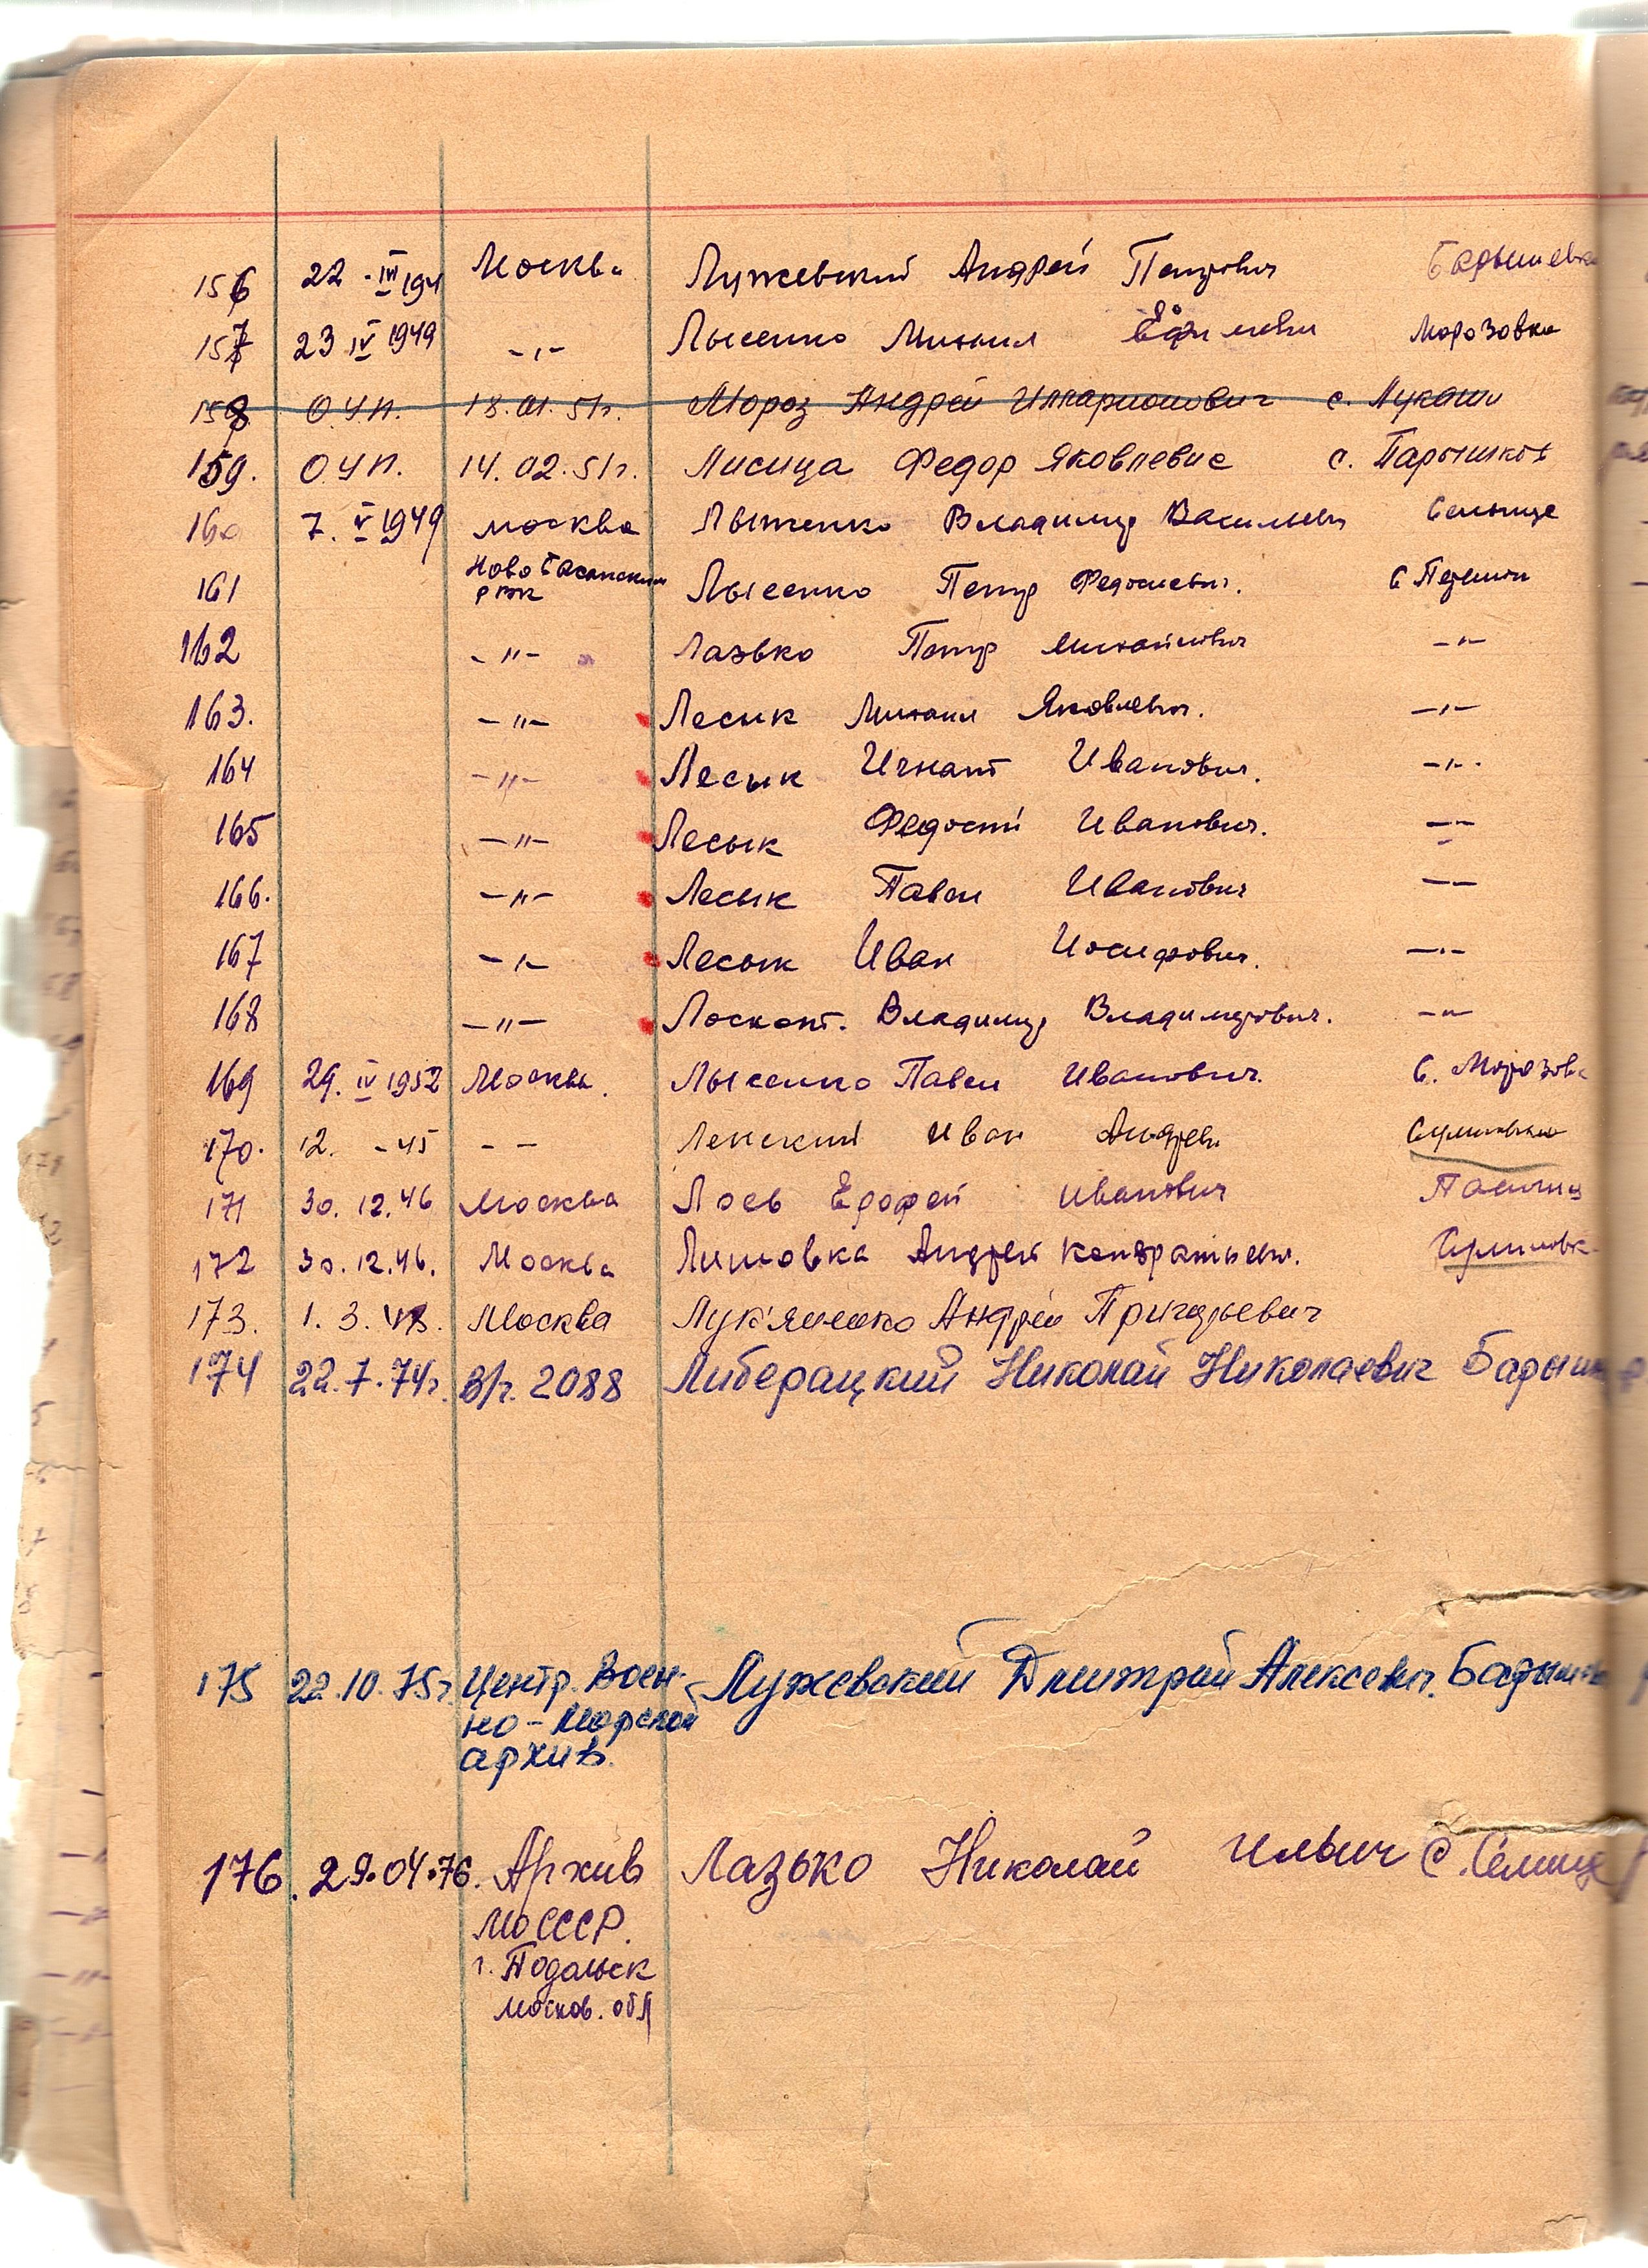 156 22 - III 194 Москва Лужевский Андрей Петрович Барышевка
157 23 IV 1949 -„- Лысенко Михаил Ефимович Морозовка
158 О.У.П. 18.01.51г. Мороз Андрей Илларионович с. Лукаши
159. О.У.П. 14.02.51г. Лисица Федор Яковлевич с. Парышков
160 7. V 1949 Москва Лыженко Владимир Васильевич Селище
161 Ново Басанский Лысенко Петр Федосиевич. с
РВК
162 -„- Лазько Петр Михайлович -„-
163. -„- Лесык Михаил Яковлевич. -„-
164 -„- Лесык Игнат Иванович. -„-
165 -„- Лесык Федосий Иванович. -„-
166. -„- Лесык Павел Иванович -„-
167 -„- Лесык Иван Иосифович. -„-
168 -„- Лоскот. Владимир Владимирович. -„-
169 29. IV 1952 Москва. Лысенко Павел Иванович. с. Морозовк
170. 12. -45 - - Ленский Иван Андреев
171 30. 12. 46 Москва Лось Ерофей Иванович
172 30. 12. 46. Москва Лишовка Андрей Кондратьевич.
173. 1. 3. Москва Лук'яненко Андрей Григорьевич
174 22.7.74г. В/ч. 2088 Либерацкий Николай Николаевич Барыш
175 22.10.75г. Центр. Воен- Лужевский Дмитрий Алексевич. Барыш
но-Морской
архив.
176. 29.04.76. Архив Лазько Николай Ильич с. Селище
МО СССР.
г. Подольск
Москов. обл